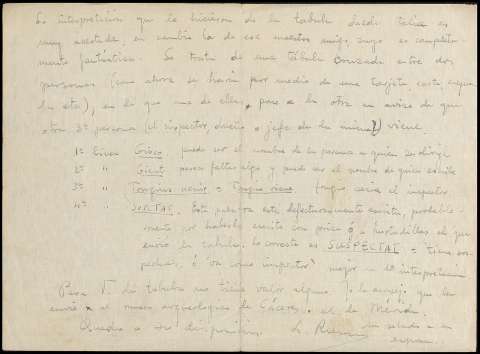 La interpretación que le hicieron de la tabula desde Italia es
muy acertada, en cambio la de ese maestro amigo suyo es completa-
mente fantástica. Se trata de una tábula cruzada entre dos
personas (como ahora se haría por medio de una tarjeta, carta, esquela
etc), en la que una de ellas pone a la otra en aviso de que
otra 3ª persona (el inspector, dueño o jefe de la mina?) viene.
1ª línea puede ser el nombre de la persona a quien se dirige
2ª " parece faltar algo y puede ser el nombre de quien escribe
3ª " Tongius venis = Tongio viene. Tongio sería el inspector
4ª " Esta palabra está defectuosamente escrita, probable-
mente por haberla escrito con prisa ó a hurtadillas el que
envió la tabula. Lo correcto es SUSPECTAT = tiene sos-
pechas, ó "va como inspector" mejor en la interpretación
Para V. la tabula no tiene valor alguno. Le aconsejo que la
envíe al museo arqueológico de Cáceres o al de Mérida.
Queda a su disposición un saludo a su
esposa.